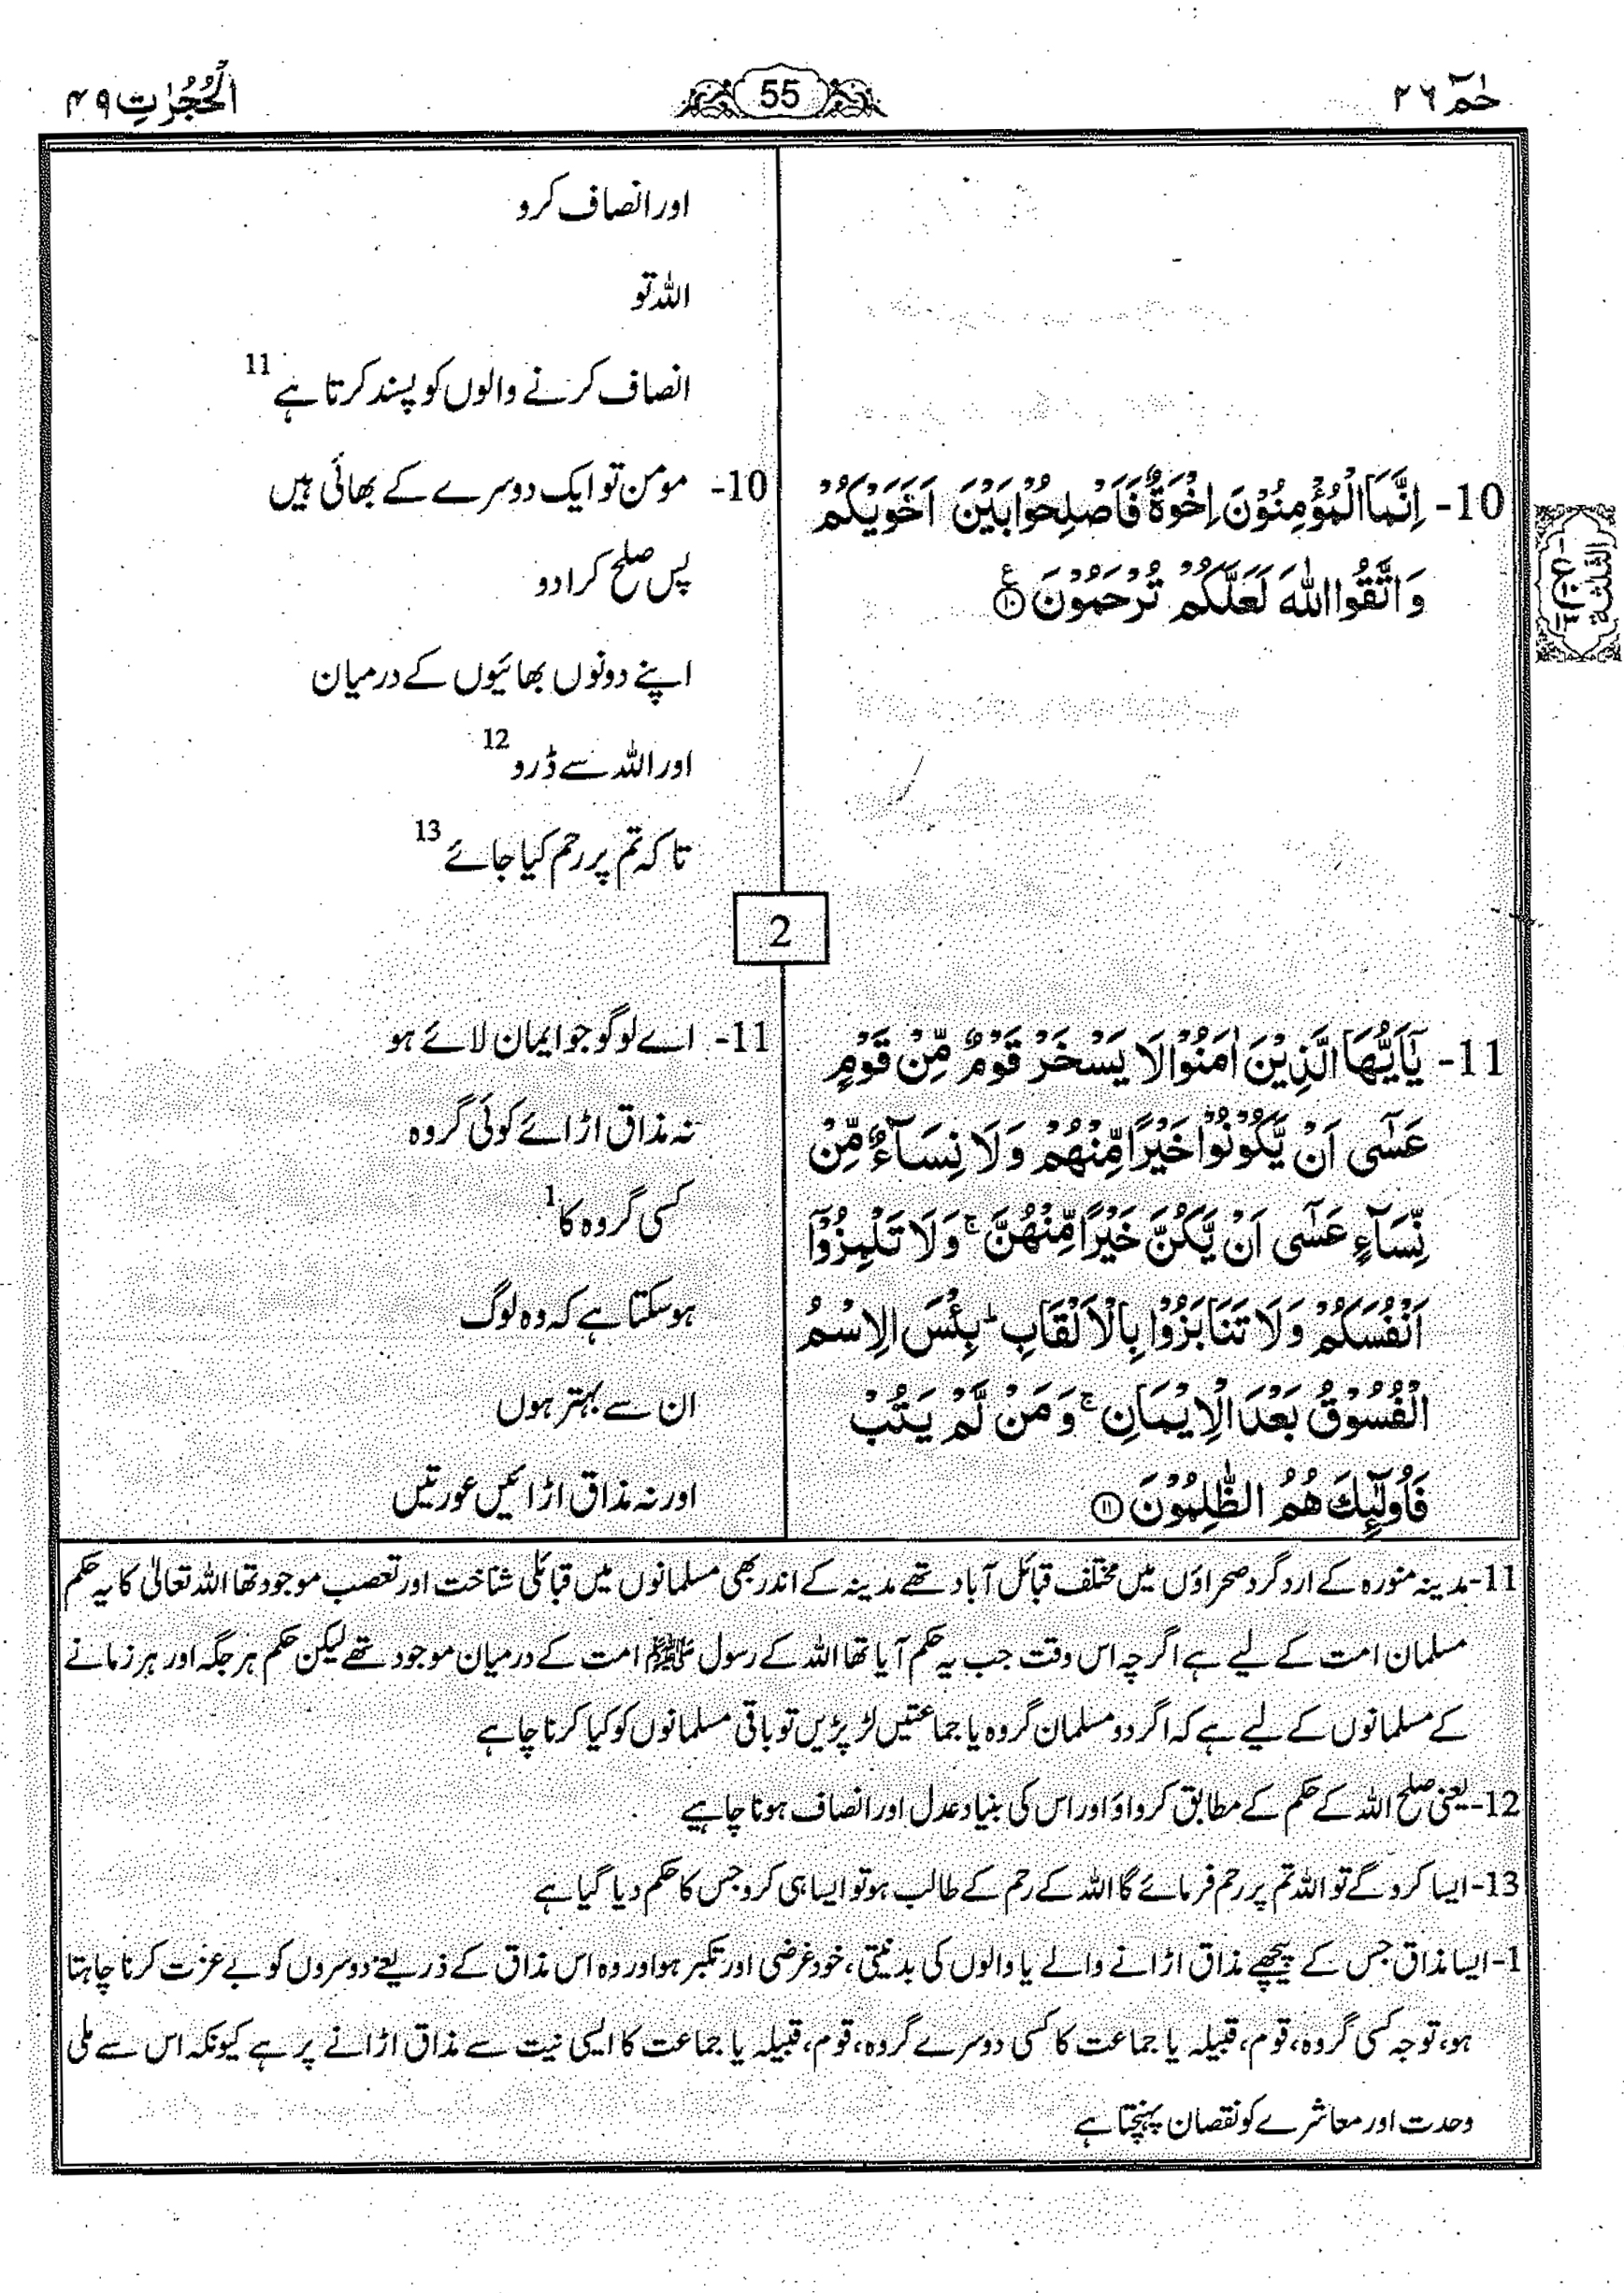 حٰمٓ ٢٦
55
الْحُجُرٰتِ ٤٩
اور انصاف کرو
اللہ تو
انصاف کرنے والوں کو پسند کرتا ہے 11
10- اِنَّمَا الْمُؤْمِنُوْنَ اِخْوَةٌ فَاَصْلِحُوْا بَيْنَ اَخَوَيْكُمْ
وَاتَّقُوا اللّٰهَ لَعَلَّكُمْ تُرْحَمُوْنَ ۧ۝١٠
10- مومن تو ایک دوسرے کے بھائی ہیں
پس صلح کرا دو
اپنے دونوں بھائیوں کے درمیان
اور اللہ سے ڈرو 12
تاکہ تم پر رحم کیا جائے 13
2
11- يٰٓاَيُّهَا الَّذِيْنَ اٰمَنُوْا لَا يَسْخَرْ قَوْمٌ مِّنْ قَوْمٍ
عَسٰٓى اَنْ يَّكُوْنُوْا خَيْرًا مِّنْهُمْ وَلَا نِسَآءٌ مِّنْ
نِّسَآءٍ عَسٰٓى اَنْ يَّكُنَّ خَيْرًا مِّنْهُنَّ ۚ وَلَا تَلْمِزُوْٓا
اَنْفُسَكُمْ وَلَا تَنَابَزُوْا بِالْاَلْقَابِ ؕ بِئْسَ الِاسْمُ
الْفُسُوْقُ بَعْدَ الْاِيْمَانِ ۚ وَمَنْ لَّمْ يَتُبْ
فَاُولٰٓئِكَ هُمُ الظّٰلِمُوْنَ ۝١١
11- اے لوگو جو ایمان لائے ہو
نہ مذاق اڑائے کوئی گروہ
کسی گروہ کا 1
ہو سکتا ہے کہ وہ لوگ
ان سے بہتر ہوں
اور نہ مذاق اڑائیں عورتیں
11- مدینہ منورہ کے اردگرد صحراؤں میں مختلف قبائل آباد تھے مدینہ کے اندر بھی مسلمانوں میں قبائلی شناخت اور تعصب موجود تھا اللہ تعالیٰ کا یہ حکم
مسلمان امت کے لیے ہے اگرچہ اس وقت جب یہ حکم آیا تھا اللہ کے رسول ﷺ امت کے درمیان موجود تھے لیکن حکم ہر جگہ اور ہر زمانے
کے مسلمانوں کے لیے ہے کہ اگر دو مسلمان گروہ یا جماعتیں لڑ پڑیں تو باقی مسلمانوں کو کیا کرنا چاہے
12- یعنی صلح اللہ کے حکم کے مطابق کرواؤ اور اس کی بنیاد عدل اور انصاف ہونا چاہیے
13- ایسا کرو گے تو اللہ تم پر رحم فرمائے گا اللہ کے رحم کے طالب ہو تو ایسا ہی کرو جس کا حکم دیا گیا ہے
1- ایسا مذاق جس کے پیچھے مذاق اڑانے والے یا والوں کی بدنیتی، خود غرضی اور تکبر ہو اور وہ اس مذاق کے ذریعے دوسروں کو بے عزت کرنا چاہتا
ہو، توجہ کسی گروہ، قوم، قبیلہ یا جماعت کا کسی دوسرے گروہ، قوم، قبیلہ یا جماعت کا ایسی نیت سے مذاق اڑانے پر ہے کیونکہ اس سے ملی
وحدت اور معاشرے کو نقصان پہنچتا ہے